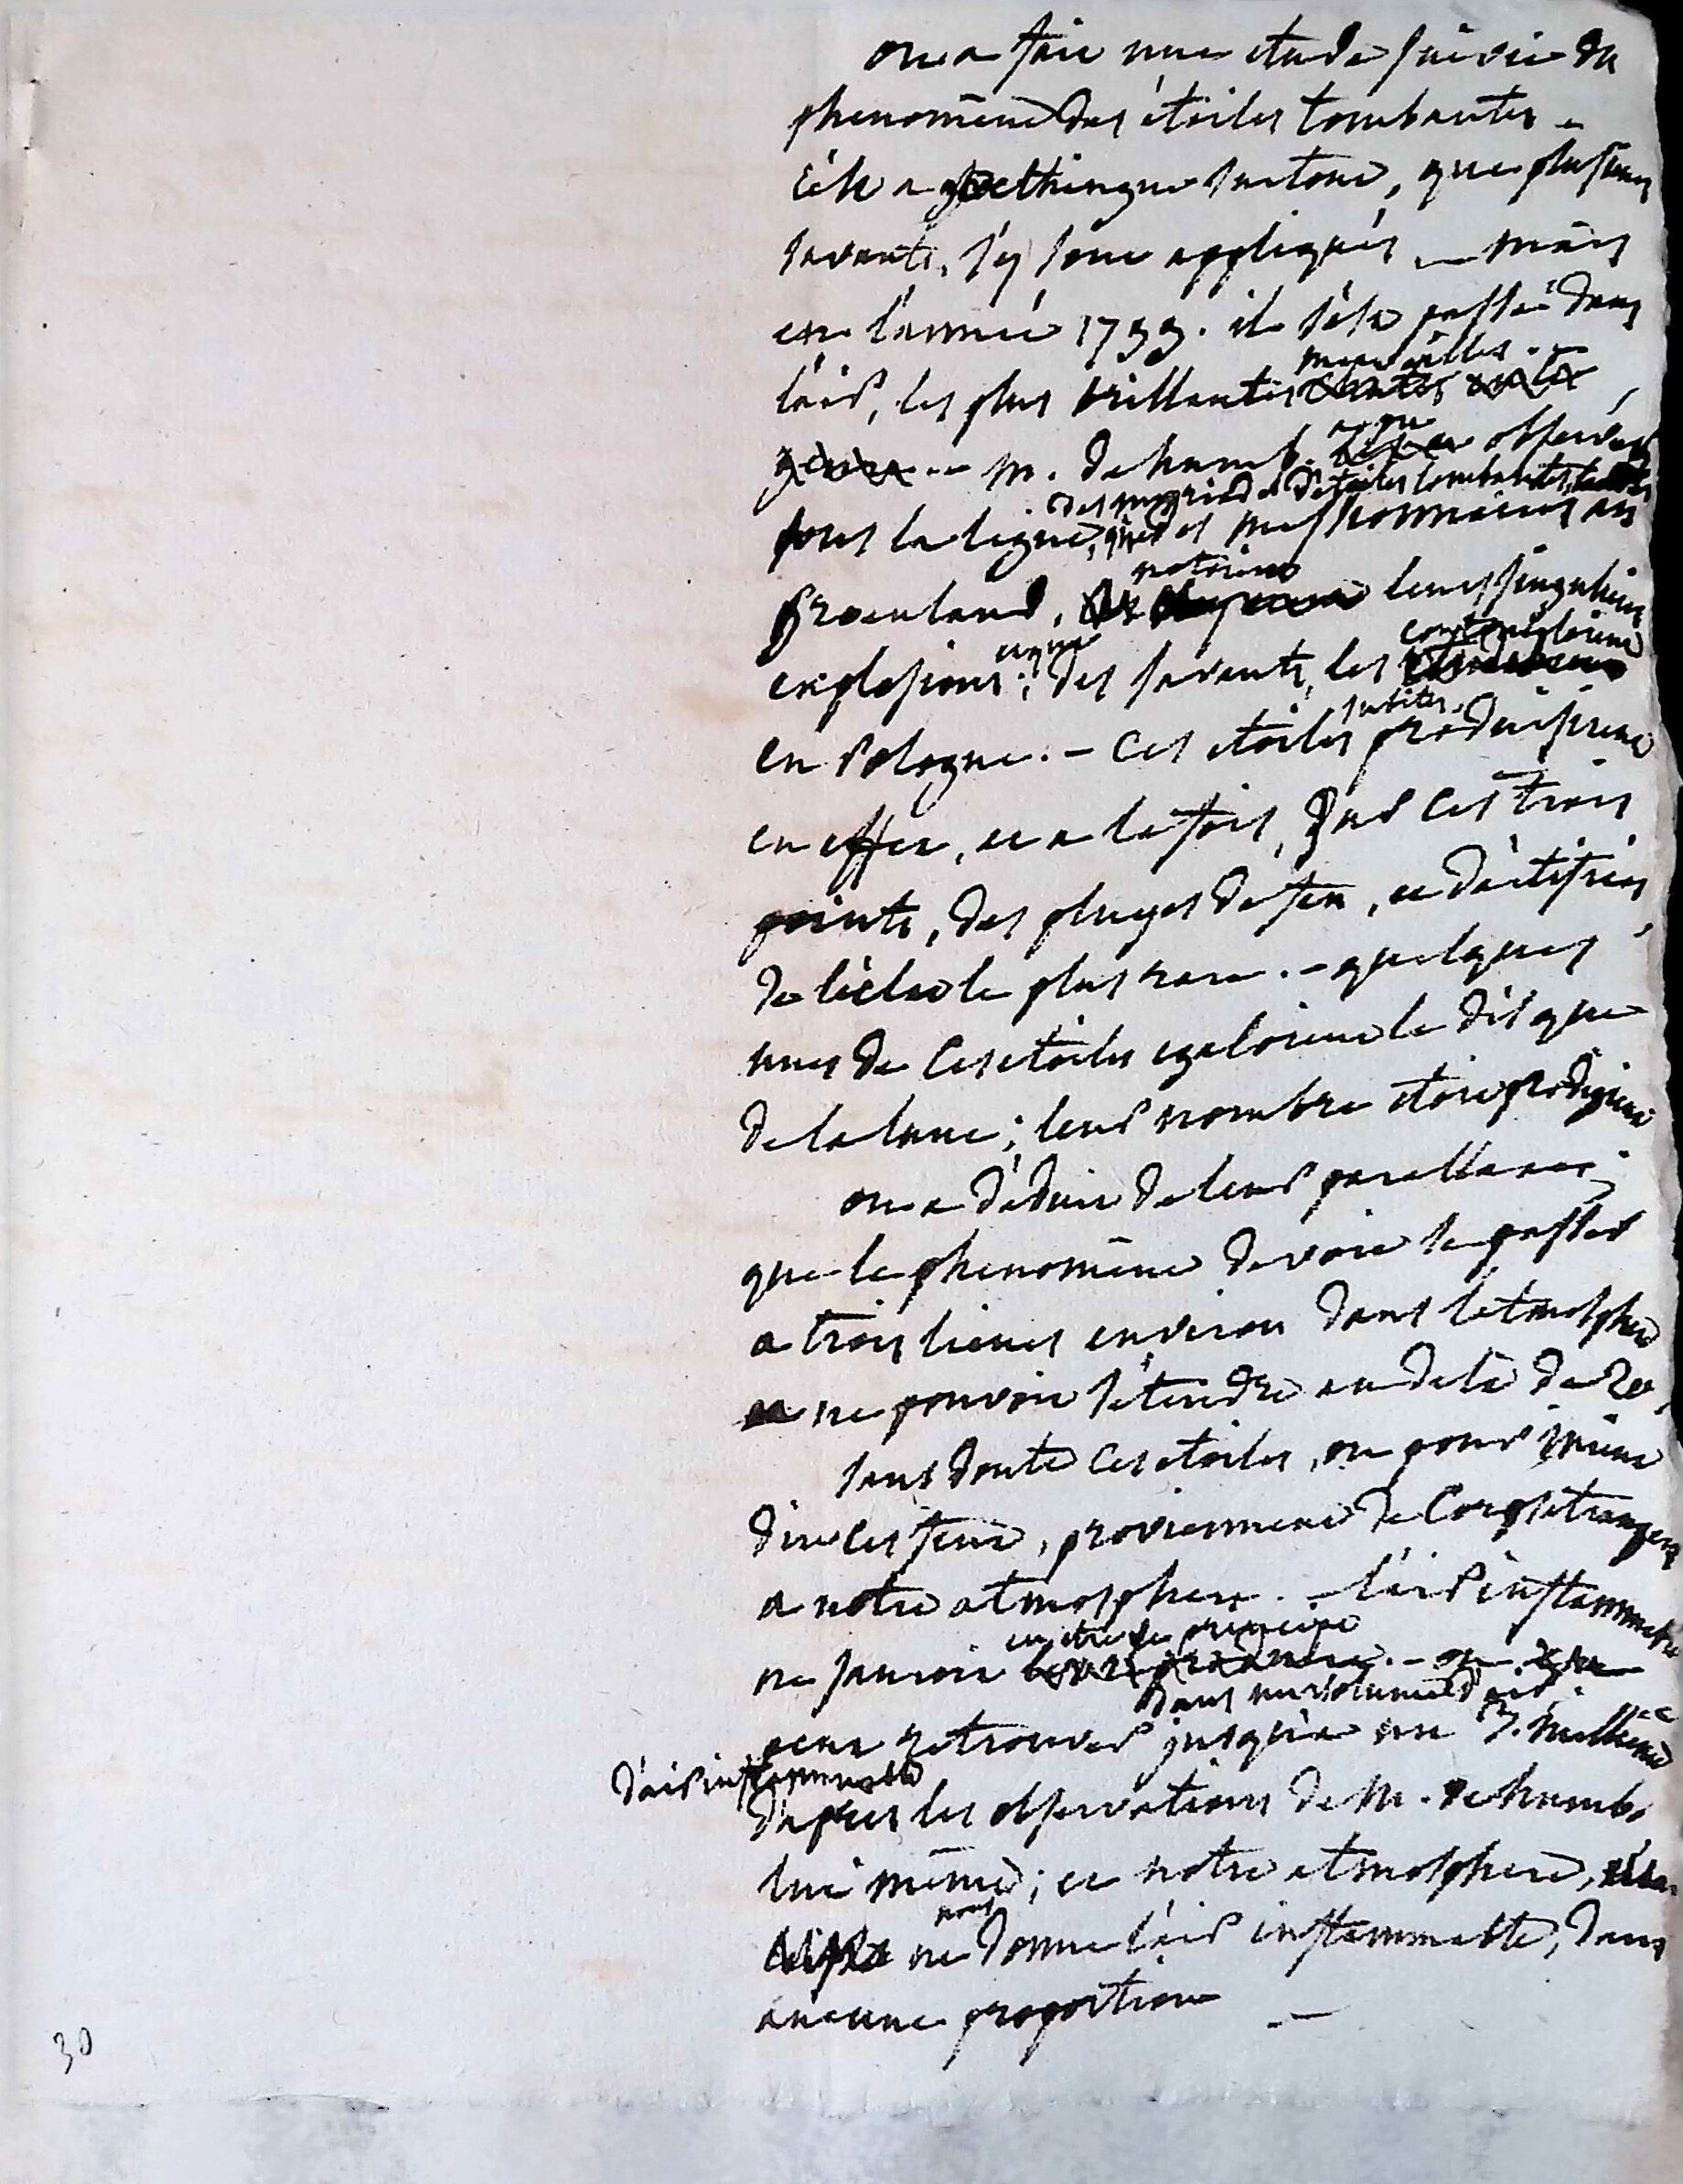 on a fait une etude suivie du
phenomène des étoiles tombantes –
c'est a goethingue surtout, que plusieurs
savants, s'y sont appliqués – mais
en l'année 1799. il s'est passé dans
merveilles. –
l'air, les plus brillantes
a pu
– m. de humb. observer
des myriades d'etoiles tombantes,
sous la ligne, que des missionnaires au
notoient
groenland, leurs singulieres
explosions; des savants, les
en Pologne. – Ces etoiles subites, produisirent
en effet, et a la fois, sur ces trois
points, des pluyes de feu, et d'artifices
de l'éclat le plus rare. – quelques
unes de ces etoiles egaloient le disque
de la lune; leur nombre etoit prodigieux
on a déduit de leur parallaxe
que le phenomène devoit se passer
a trois lieues environ dans l'atmosphere
et ne pouvoit s'étendre au dela de 20,
sans doute ces etoiles, ou pour mieux
dire ces feux, proviennent de Corps etrangers
a notre atmosphere. – l'air inflammable
en etre le principe
ne sauroit
dans un volume d'air
peut retrouver jusqu'a un 3. millieme
d'air inflammable
d'apres les observations de M. de humb.
lui même; et notre atmosphere,
nous
ne donne l'air inflammable, dans
aucune proportion –
30